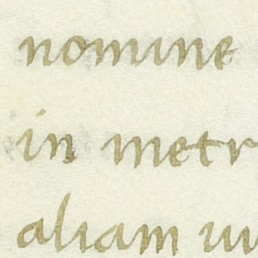 nomine
in metr
aliam